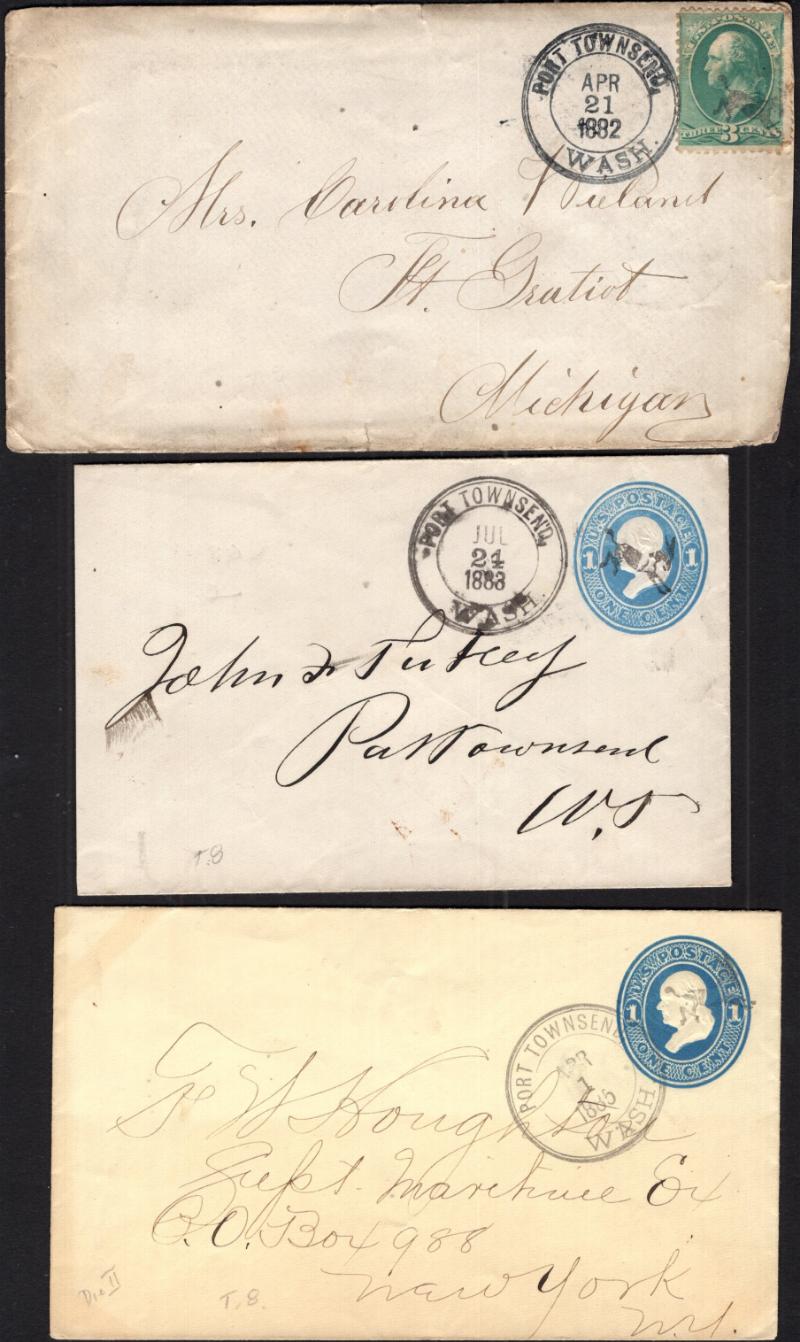 PORT TOWNSEND,
APR
21
1882
WASH.
U.S. POSTAGE
THREE 3 CENTS
Mrs. Carolina Wieland
Ft. Gratiot
Michigan
PORT TOWNSEND,
JUL
24
1883
WASH.
U.S. POSTAGE
1 1
ONE CENT
John
Port Townsend
W.T
T.8
PORT TOWNSEND
APR
1
1885
WASH
U.S. POSTAGE
1 1
ONE CENT
F W Houghton
Supt. Maritime Ex
P.O. Box 988
New York
N.Y.
Die II
T.8.